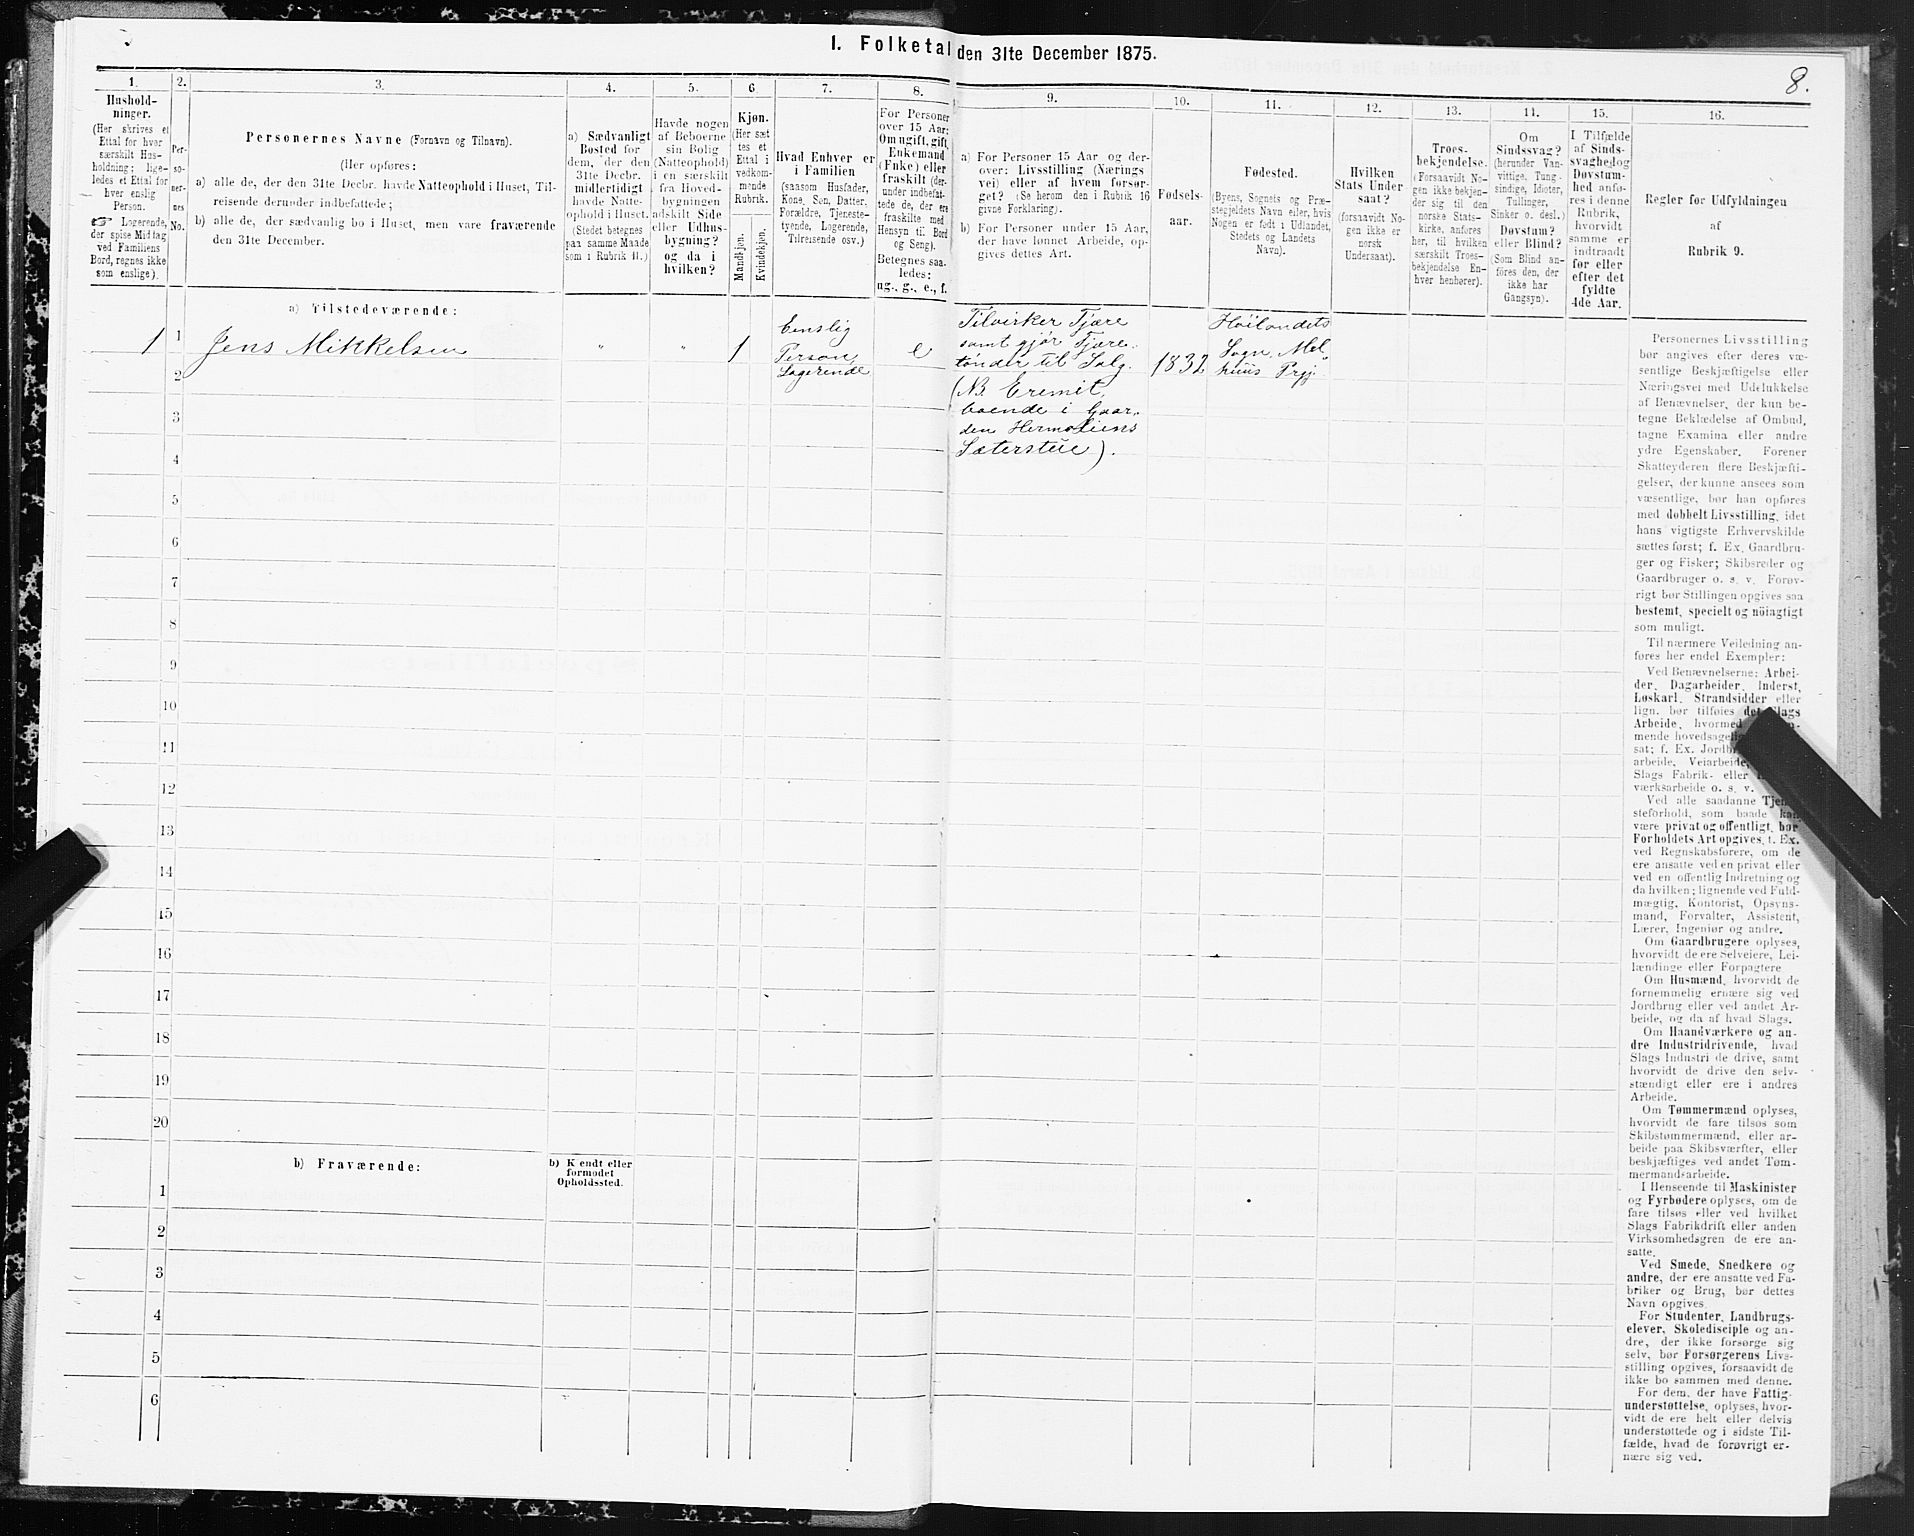 1. Folketal den 31te December 1875.
8.
1.
Hushold-
ninger.
(Her skrives et
Ettal for hver
særskilt Hus-
holdning; lige-
ledes et Ettal for
hver enslig
Person.
☞ Logerende,
der spise Middag
ved Familiens
Bord, regnes ikke
som enslige).
2.
Per-
so-
ner-
nes
No.
3.
Personernes Navne (Fornavn og Tilnavn).
(Her opføres:
a) alle de, der den 31te Decbr. havde Natteophold i Huset, Til-
reisende derunder indbefattede;
b) alle de, der sædvanlig bo i Huset, men vare fraværende
den 31te December.
4.
a) Sædvanligt
Bosted for
dem, der den
31te Decbr.
midlertidigt
havde Natte-
ophold i Huset.
(Stedet betegnes
paa samme Maade
som i Rubrik 11.)
5.
Havde nogen
af Beboerne
sin Bolig
(Natteophold)
i en særskilt
fra Hoved-
bygningen
adskilt Side
eller Udhus-
bygning?
og da i
hvilken?
6.
Kjøn.
(Her sæt
tes et
Ettal i
vedkom-
mende
Rubrik.
Mandkjøn.
Kvindekjøn.
7.
Hvad Enhver er
i Familien
(saasom Husfader,
Kone, Søn, Datter,
Forældre, Tjeneste-
tyende, Logerende,
Tilreisende osv.)
8.
For Personer
over 15 Aar:
Om ugift, gift,
Enkemand
(Enke) eller
fraskilt (der-
under indbefat-
tede de, der ere
fraskilte med
Hensyn til Bord
og Seng).
Betegnes saa-
ledes:
ug., g., e., f.
9.
a) For Personer 15 Aar og der-
over: Livsstilling (Nærings
vei) eller af hvem forsør-
get? (Se herom den i Rubrik 16
givne Forklaring).
b) For Personer under 15 Aar,
der have lønnet Arbeide, op-
gives dettes Art.
10.
Fødsels-
aar.
11.
Fødested.
(Byens, Sognets og Præ-
stegjeldets Navn eller, hvis
Nogen er født i Udlandet,
Stedets og Landets
Navn).
12.
Hvilken
Stats Under
saat?
(forsaavidt No-
gen ikke er
norsk
Undersaat).
13.
Troes-
bekjendelse.
(Forsaavidt No-
gen ikke bekjen-
der sig til den
norske Stats-
kirke, anføres
her, til hvilken
særskilt Troes-
bekjendelse En-
hver henhører).
14.
Om
Sindssvag?
(herunder Van-
vittige, Tung-
sindige, Idioter,
Tullinger,
Sinker o. desl.)
Døvstum?
eller Blind?
(Som Blind an-
føres den, der
ikke har
Gangsyn).
15.
I Tilfælde
af Sinds-
svaghed og
Døvstum-
hed anfø-
res i denne
Rubrik,
hvorvidt
samme er
indtraadt
før eller
efter det
fyldte
4de Aar.
16.
Regler for Udfyldningen
af
Rubrik 9.
a) Tilstedeværende:
1 1 Jens Mikkelsen " " 1
Enslig
Person,
Logerende
e
Tilvirker Tjære
samt gjør Tjære-
tønder til Salg.
(NB. Eremit,
boende i Gaar-
den Hermoliens
Sæterstue).
1832
Høilandets
Sogn, Mel-
huus Prgj.
2
3
4
5
6
7
8
9
10
11
12
13
14
15
16
17
18
19
20
b) Fraværende:
b) Kjendt eller
formodet
Opholdssted.
1
2
3
4
5
6
Personernes Livsstilling
bør angives efter deres væ-
sentlige Beskjæftigelse eller
Næringsvei med Udelukkelse
af Benævnelser, der kun be-
tegne Beklædelse af Ombud,
tagne Examina eller andre
ydre Egenskaber. Forener
Skatteyderen flere Beskjæfti-
gelser, der kunne ansees som
væsentlige, bør han opføres
med dobbelt Livsstilling, idet
hans vigtigste Erhvervskilde
sættes først; f. Ex. Gaardbru-
ger og Fisker; Skibsreder og
Gaardbruger o. s. v. Forøv-
rigt bør Stillingen opgives saa
bestemt, specielt og nöiagtigt
som muligt.
Til nærmere Veiledning an-
føres her endel Exempler:
Ved Benævnelserne: Arbei-
der, Dagarbeider, Inderst,
Løskarl, Strandsidder eller
lign. bør tilføies det Slags
Arbeide, hvormed
mende hovedsagelig
sat; f. Ex. Jordbr
arbeide, Veiarbeide,
Slags Fabrik- eller
værksarbeide o. s. v.
Ved alle saadanne Tjen
steforhold, som baade kan
være privat og offentligt, bør
Forholdets Art opgives, t. Ex.
ved Regnskabsførere, om de
ere ansatte ved en privat eller
ved en offentlig Indretning og
da hvilken; lignende ved Fuld-
mægtig, Kontorist, Opsyns-
mand, Forvalter, Assistent,
Lærer, Ingeniør og andre.
Om Gaardbrugere oplyses,
hvorvidt de ere Selveiere, Lei-
lændinge eller Forpagtere
Om Husmænd, hvorvidt de
fornemmelig ernære sig ved
Jordbrug eller ved andet Ar-
beide, og da af hvad Slags.
Om Haandværkere og an-
dre Industridrivende, hvad
Slags Industri de drive, samt
hvorvidt de drive den selv-
stændigt eller ere i andres
Arbeide.
Om Tømmermænd oplyses,
hvorvidt de fare tilsøs som
Skibstømmermænd, eller ar-
beide paa Skibsværfter, eller
beskjæftiges ved andet Tøm-
mermandsarbeide.
I Henseende til Maskinister
og Fyrbødere oplyses, om de
fare tilsøs eller ved hvilket
Slags Fabrikdrift eller anden
Virksomhedsgren de ere an-
satte.
Ved Smede, Snedkere og
andre, der ere ansatte ved Fa-
briker og Brug, bør dettes
Navn opgives.
For Studenter, Landbrugs-
elever, Skoledisciple og an-
dre, der ikke forsørge sig
selv, bør Forsørgerens Livs-
stilling opgives, forsaavidt de
ikke bo sammen med denne.
For dem, der have Fattig-
understøttelse, oplyses, hvor-
vidt de ere helt eller delvis
understøttede og i sidste Til-
fælde, hvad de forøvrigt er-
nære sig ved.